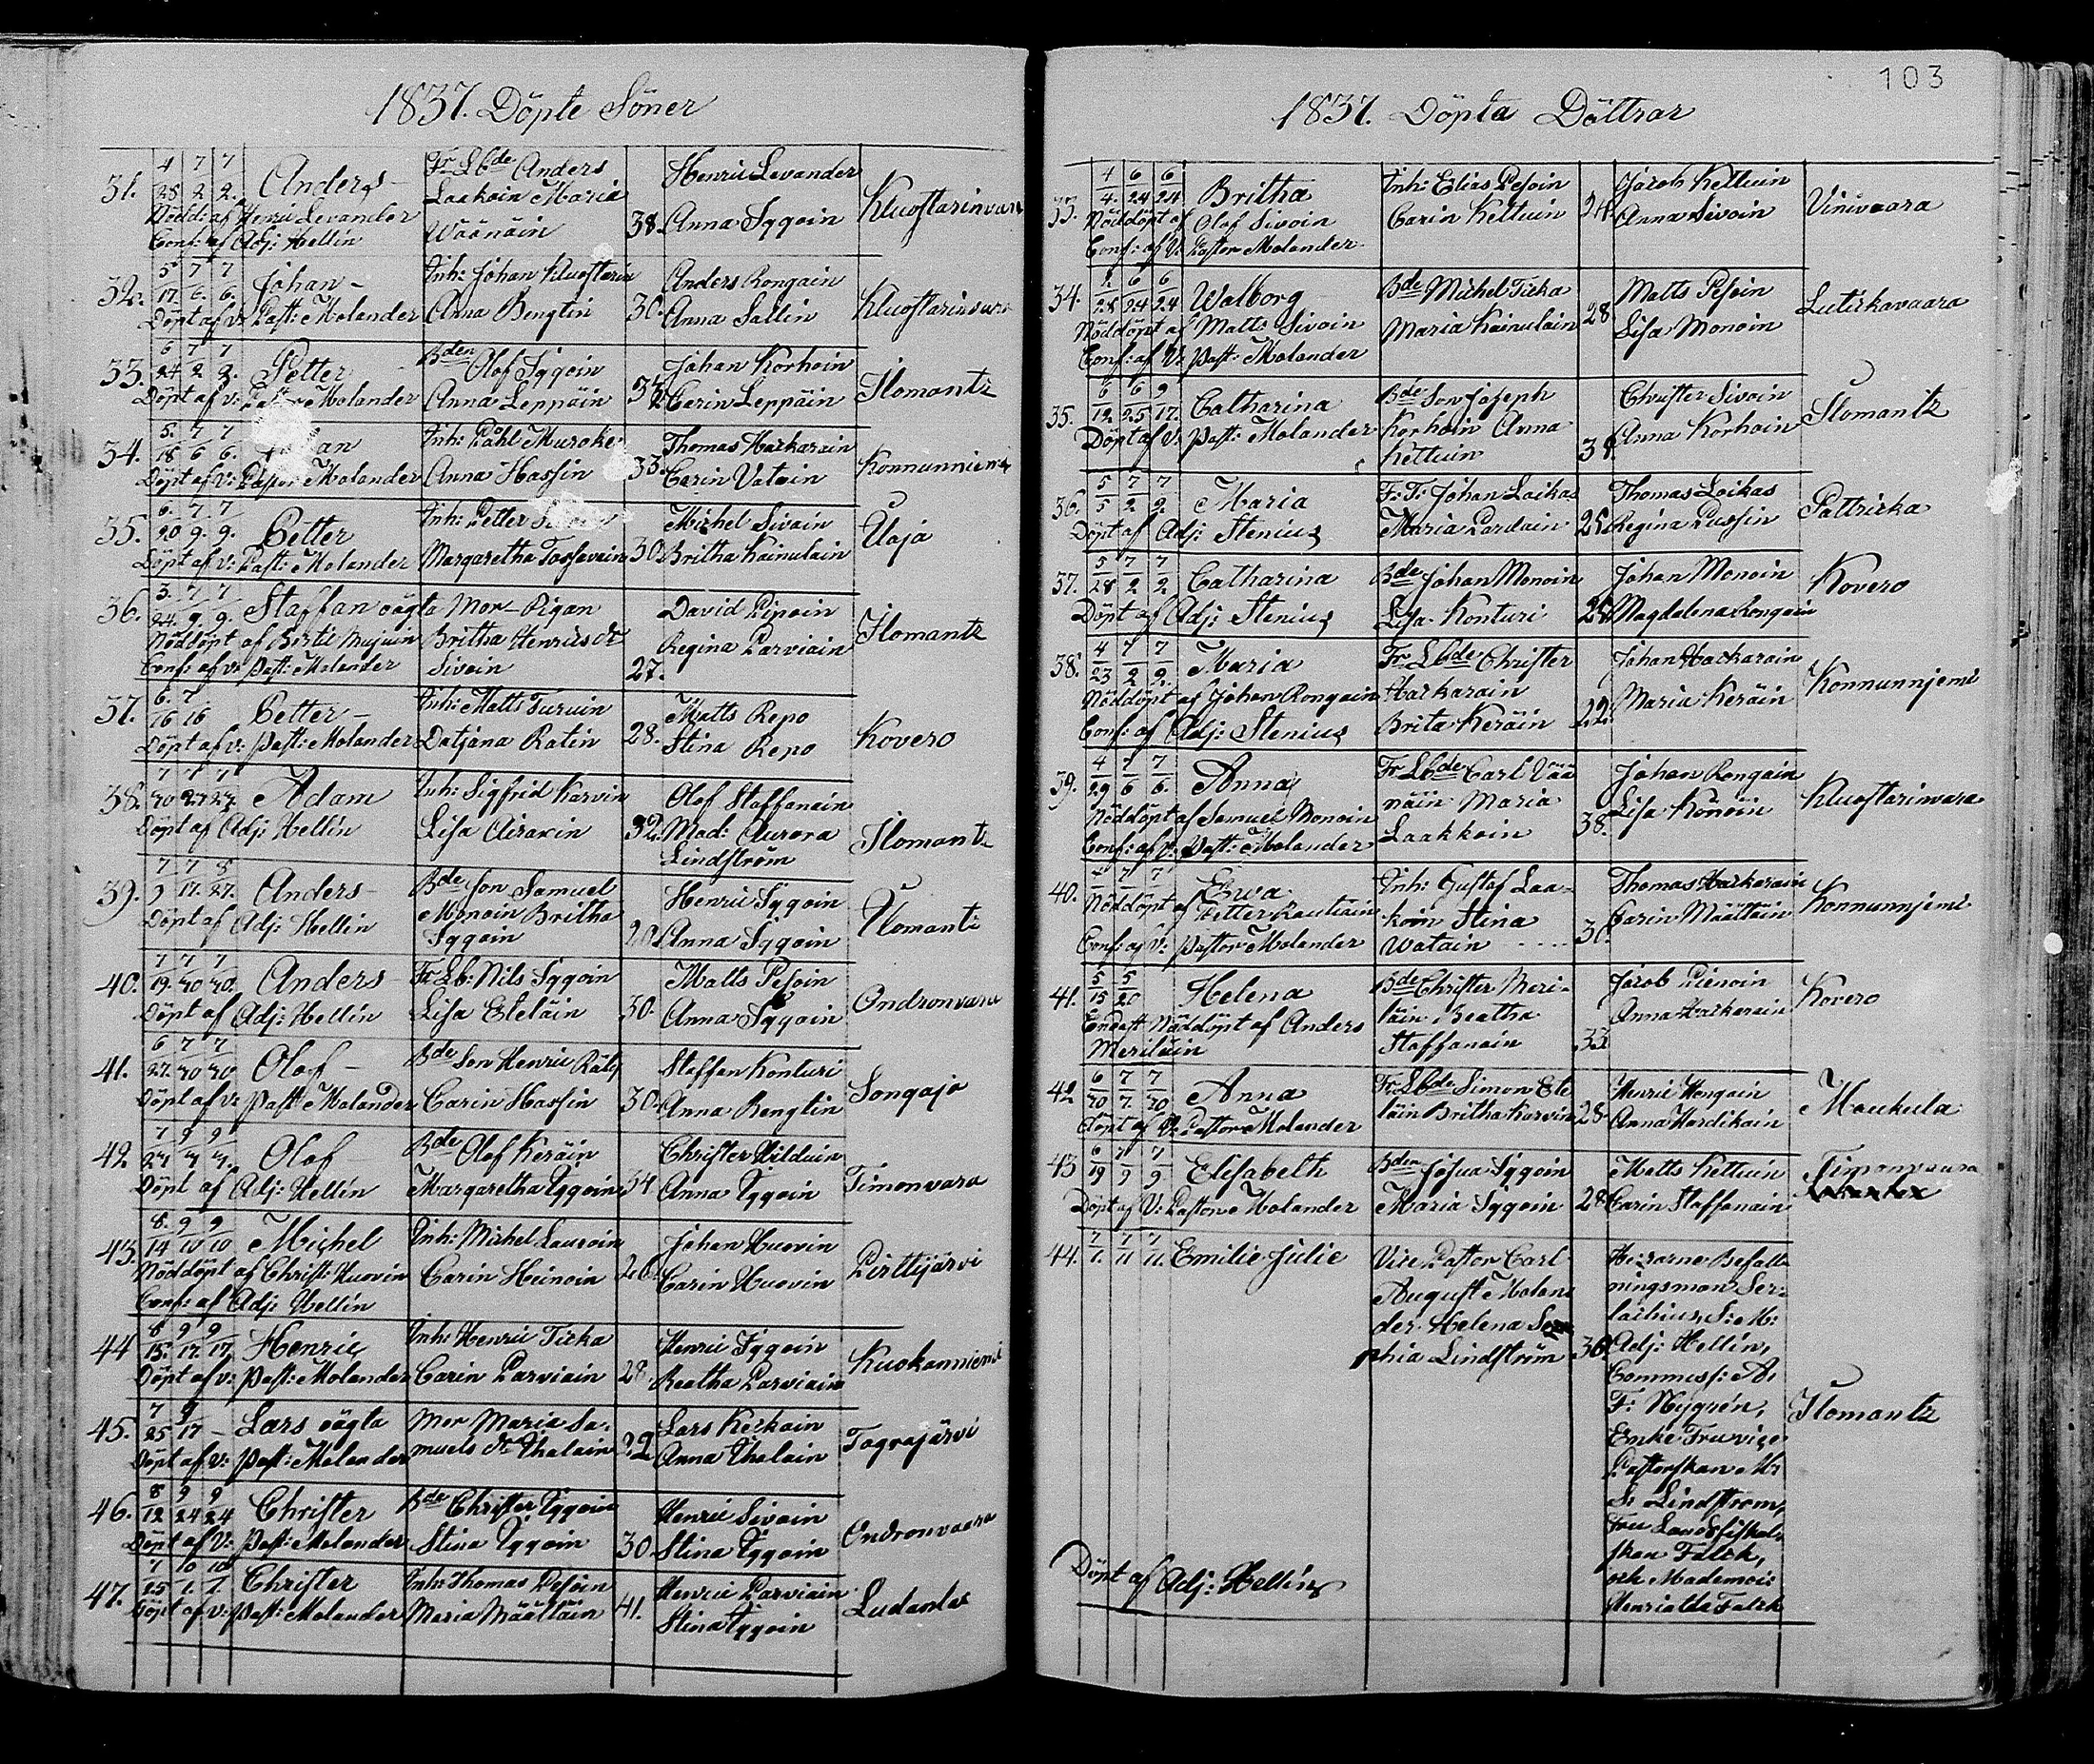 103
1837. Döpte Söner
31. 4/28 7/2 7/2. Anders Fr Lbde Anders Henric Levander
Laakoin Maria Kluostarinvara
Nöddöpt af Henric Levander 38. Anna Iggoin
Conf: af Adj: Hellin Wäänäin
32. 5/17. 7/6. 7/6. Johan Inh: Johan Kluostarin Anders Rongain
Döpt af V: Past: Molander Anna Bengtin 30. Anna Sallin
33. 6/24 7/2 7/2. Petter Bden Olof Iggoin Johan Korhoin Ilomantz
Döpt af V: Pastor Molander Anna Leppäin Carin Leppäin
34. 5/18 7/6 7/6. Inh: Påhl Muroke Thomas Harkarain Konnunniemi
Döpt af V: Pastor Molander Anna Hassin 33. Carin Vatain
35. 6/20 7/9. 7/9. Petter Inh: Petter Michel Sivoin
Döpt af V: Past: Molander Margaretha Tossavain 30. Britha Kainulain
36. 3/24. 7/9. 7/9. Staffan oägta Mor Pigan David Piipoin Ilomantz
Nöddöpt af Bertil Mujuin Britha Henricsdr Regina Parviain
Conf: af V: Past: Molander Sivoin 27.
37. 6/16 7/16 Petter Inh: Matts Turuin Matts Repo Kovero
Döpt af V: Past: Molander Datjana Ratin 28. Stina Repo
38. 7/20 7/27 7/27. Adam Inh: Sigfrid Karvin Olof Staffanain Ilomantz
Döpt af Adj: Hellin Lisa Airaxin 32. Mad: Aurora
Lindström
39. 7/9 7/17. 8/27. Anders Bde son Samuel Henric Iggoin Ilomantz
Döpt af Adj: Hellin Monoin Britha
Iggoin 20. Anna Iggoin
40. 7/19. 7/20 7/20. Anders Fr Lb: Nils Iggoin Matts Pesoin Ondronvara
Döpt af Adj: Hellin Lisa Eteläin 30. Anna Iggoin
41. 6/27. 7/20 7/20 Olof Bde Son Henric Räty Staffan Konturi Songajo
Döpt af V: Past: Molander Carin Hassin 30. Anna Bengtin
42. Olof Bde Olof Keräin Christer Hilduin Timonvara
Döpt af Adj: Hellin Margaretha Iggoin 34 Anna Iggoin
43. 8/14 9/10 9/10 Michel Inh: Michel Lauroin Johan Huovin Pirttijärvi
Nöddöpt af Christ: Huovin Carin Heinoin 26. Carin Huovin
Conf: af Adj: Hellin
44 8/15. 9/17. 9/17. Henric Inh: Henric Ticka Henric Iggoin Kuokanniemi
Döpt af V: Past: Molander Carin Parviain 28. Reetha Parviain
45. 7/25 9/17 Lars oägta Mor Maria Sa- Lars Kerkain
Döpt af V: Past: Molander muels dr Ihalain 22 Anna Ihalain
46. 8/12 9/24 9/24 Christer Bde Christer Iggoin Henric Sivoin Ondronvaara
Döpt af V: Past: Molander Stina Iggoin 30. Stina Iggoin
47. 7/25 10/1. 10/1. Christer Inh: Thomas Pesoin Henric Parviain
Döpt af V: Past: Molander Maria Määttäin 41. Stina Iggoin
1837. Döpta Döttrar
33. 4/4. 6/24 6/24 Britha Inh: Elias Pesoin Jacob Kettuin Vinivaara
Nöddöpt af Olof Sivoin Carin Kettuin 24. Anna Sivoin
Conf: af V: Pastor Molander
34. 6/24 6/24 Walborg Bde Michel Ticka Matts Pesoin
Nöddöpt af Matts Sivoin Maria Kainulain 28 Lisa Monoin
Conf: af V: Past: Molander
35. 6/12. 6/25 9/17. Catharina Bde Son Joseph Christer Sivoin Ilomantz
Döpt af V: Past: Molander Korhoin Anna Anna Korhoin
Kettuin
36. 5/5 7/2 7/2. Maria F: T: Johan Loikas Thomas Loikas Pattricka
Döpt af Adj: Stenius Maria Pardain 25. Regina Pussin
37. 5/28 7/2 7/2 Catharina Bde Johan Monoin Johan Monoin Kovero
Döpt af Adj: Stenius Lisa Konturi 25. Magdalena Rongain
38. 4/23 7/2 7/2. Maria Fr Lbde Christer Johan Harkarain Konnunnjemi
Nöddöpt af Johan Rongain Harkarain
Conf: af Adj: Stenius Brita Keräin 22. Maria Keräin
39. 4/29 7/6 7/6. Anna Fr Lbde Carl Vää- Johan Rongain Kluostarinvara
Nöddöpt af Samuel Monoin näin Maria Lisa Könöin
Conf: af V: Past: Molander Laakkoin 38.
40. Ewa Inh: Gustaf Laa- Thomas Harkarain Konnunnjemi
Nöddöpt af Petter Rautiain koin Stina Carin Määttäin
Conf: af V: Pastor Molander Watain
41. 5/15 5/20 Helena Bde Christer Meri- Jacob Piénoin Kovero
Endast Nöddöpt af Anders läin Beatha Anna Harkarain
Meriläin Staffanain 33.
42 6/20 7/7. 7/20 Anna Fr Lbde Simon Ete Henric Hengoin Maukula
Döpt af V: Pastor Molander läin Britha Karvin 28. Anna Hardikain
43 6/19 7/9 7/9. Elisabeth Bden Josua Iggoin Matts Kettuin Timonvaara
Döpt af V: Pastor Molander Maria Iggoin 28. Carin Staffanain
44. 7/1. 7/11 7/11. Emilie Julie Vice Pastor Carl Herrarne Befall-
August Molan- ningsman Ser-
der Helena So- lachius, S: M:
phia Lindström 30. Adj: Hellin,
Commiss: A:
F: Nygrén, Ilomantz
Enke Fru vice
Pastorskan M:
S: Lindström,
Fru Landsfiskal-
skan Falck,
och Mademois:
Henrietta Falck
Döpt af Adj: Hellin